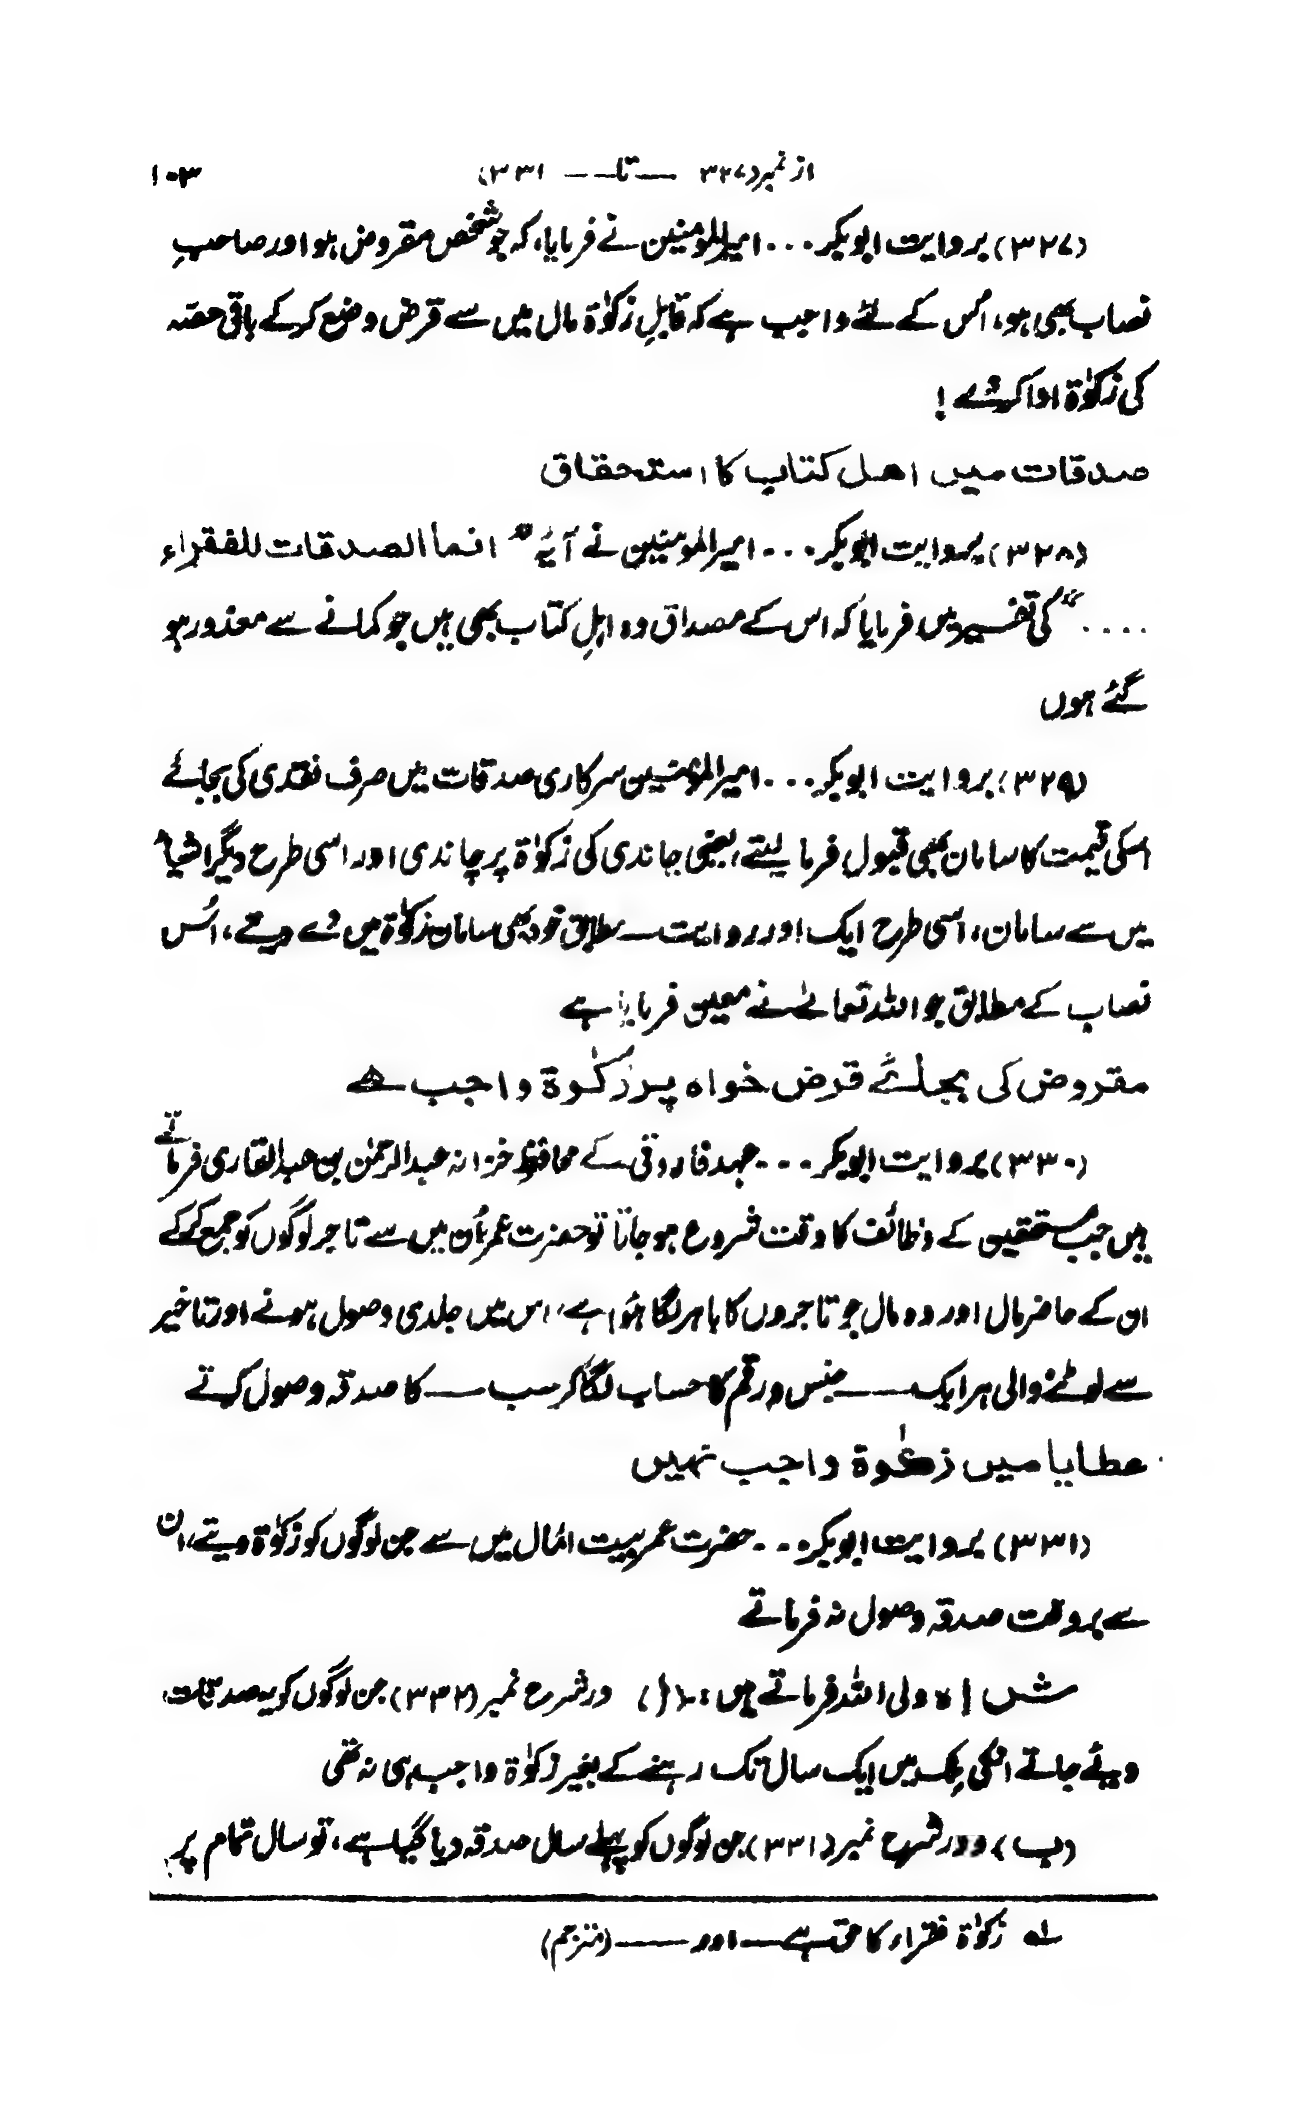 از نمبر (۳۲۷ — تا — ۳۳۱) ۱۰۳
(۳۲۷) بروایت ابوبکر... امیرالمؤمنین نے فرمایا، کہ جو شخص مقروض ہو اور صاحبِ
نصاب بھی ہو، اس کے لئے واجب ہے کہ قابلِ زکوٰۃ مال میں سے قرض وضع کر کے باقی حصہ
کی زکوٰۃ ادا کرے!
صدقات میں اھل کتاب کا استحقاق
(۳۲۸) بروایت ابوبکر... امیرالمومنین نے آیۂ "انما الصدقات للفقراء
...." کی تفسیر میں فرمایا کہ اس کے مصداق وہ اہلِ کتاب بھی ہیں جو کمانے سے معذور ہو
گئے ہوں
(۳۲۹) بروایت ابوبکر... امیرالمؤمنین سرکاری صدقات میں صرف نقدی کی بجائے
اسکی قیمت کا سامان بھی قبول فرما لیتے، یعنی چاندی کی زکوٰۃ پر چاندی اور اسی طرح دیگر اشیاء
میں سے سامان، اسی طرح ایک اور روایت — مطابق خود بھی سامان زکوٰۃ میں دے دیتے، اُس
نصاب کے مطابق جو اللہ تعالےٰ نے معین فرمایا ہے
مقروض کی بجائے قرض خواہ پر زکوٰۃ واجب ھے
(۳۳۰) بروایت ابوبکر... عہد فاروقی کے محافظ خزانہ عبدالرحمٰن بن عبدالقاری فرماتے
ہیں جب مستحقین کے وظائف کا وقت شروع ہو جاتا تو حضرت عمر اُن میں سے تاجر لوگوں کو جمع کر کے
ان کے حاضر مال اور وہ مال جو تاجروں کا باہر لگا ہُوا ہے، اس میں جلدی وصول ہونے اور تاخیر
سے لوٹنے والی ہر ایک — جنس و رقم کا حساب لگا کر سب — کا صدقہ وصول کرتے
عطایا میں زکوٰۃ واجب نہیں
(۳۳۱) بروایت ابوبکر... حضرت عمر بیت المال میں سے جن لوگوں کو زکوٰۃ دیتے، ان
سے بروقت صدقہ وصول نہ فرماتے
شاہ ولی اللہ فرماتے ہیں :۔ (ا) در شرح نمبر (۳۳۲) جن لوگوں کو یہ صدقات
دیئے جاتے انکی مِلک میں ایک سال تک رہنے کے بغیر زکوٰۃ واجب ہی نہ تھی
(ب) و در شرح نمبر (۳۳۱) جن لوگوں کو پہلے سال صدقہ دیا گیا ہے، تو سال تمام پر
لہ زکوٰۃ فقراء کا حق ہے — اور — (مترجم)